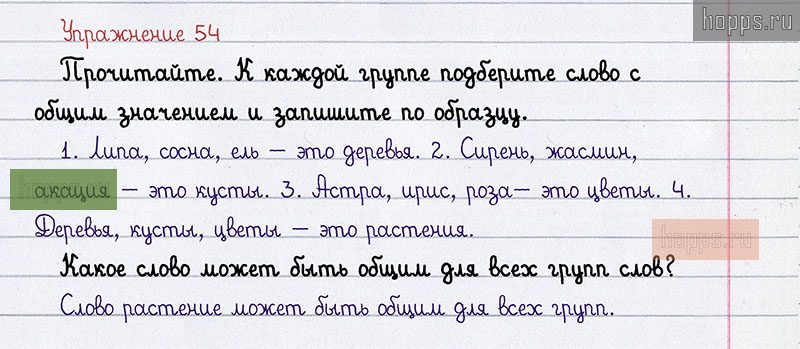 hopps.ru
Упражнение 54
Прочитайте. К каждой группе подберите слово с
общим значением и запишите по образцу.
1. Липа, сосна, ель – это деревья. 2. Сирень, жасмин,
акация – это кусты. 3. Астра, ирис, роза– это цветы. 4.
Деревья, кусты, цветы – это растения.
hopps.ru
Какое слово может быть общим для всех групп слов?
Слово растение может быть общим для всех групп.